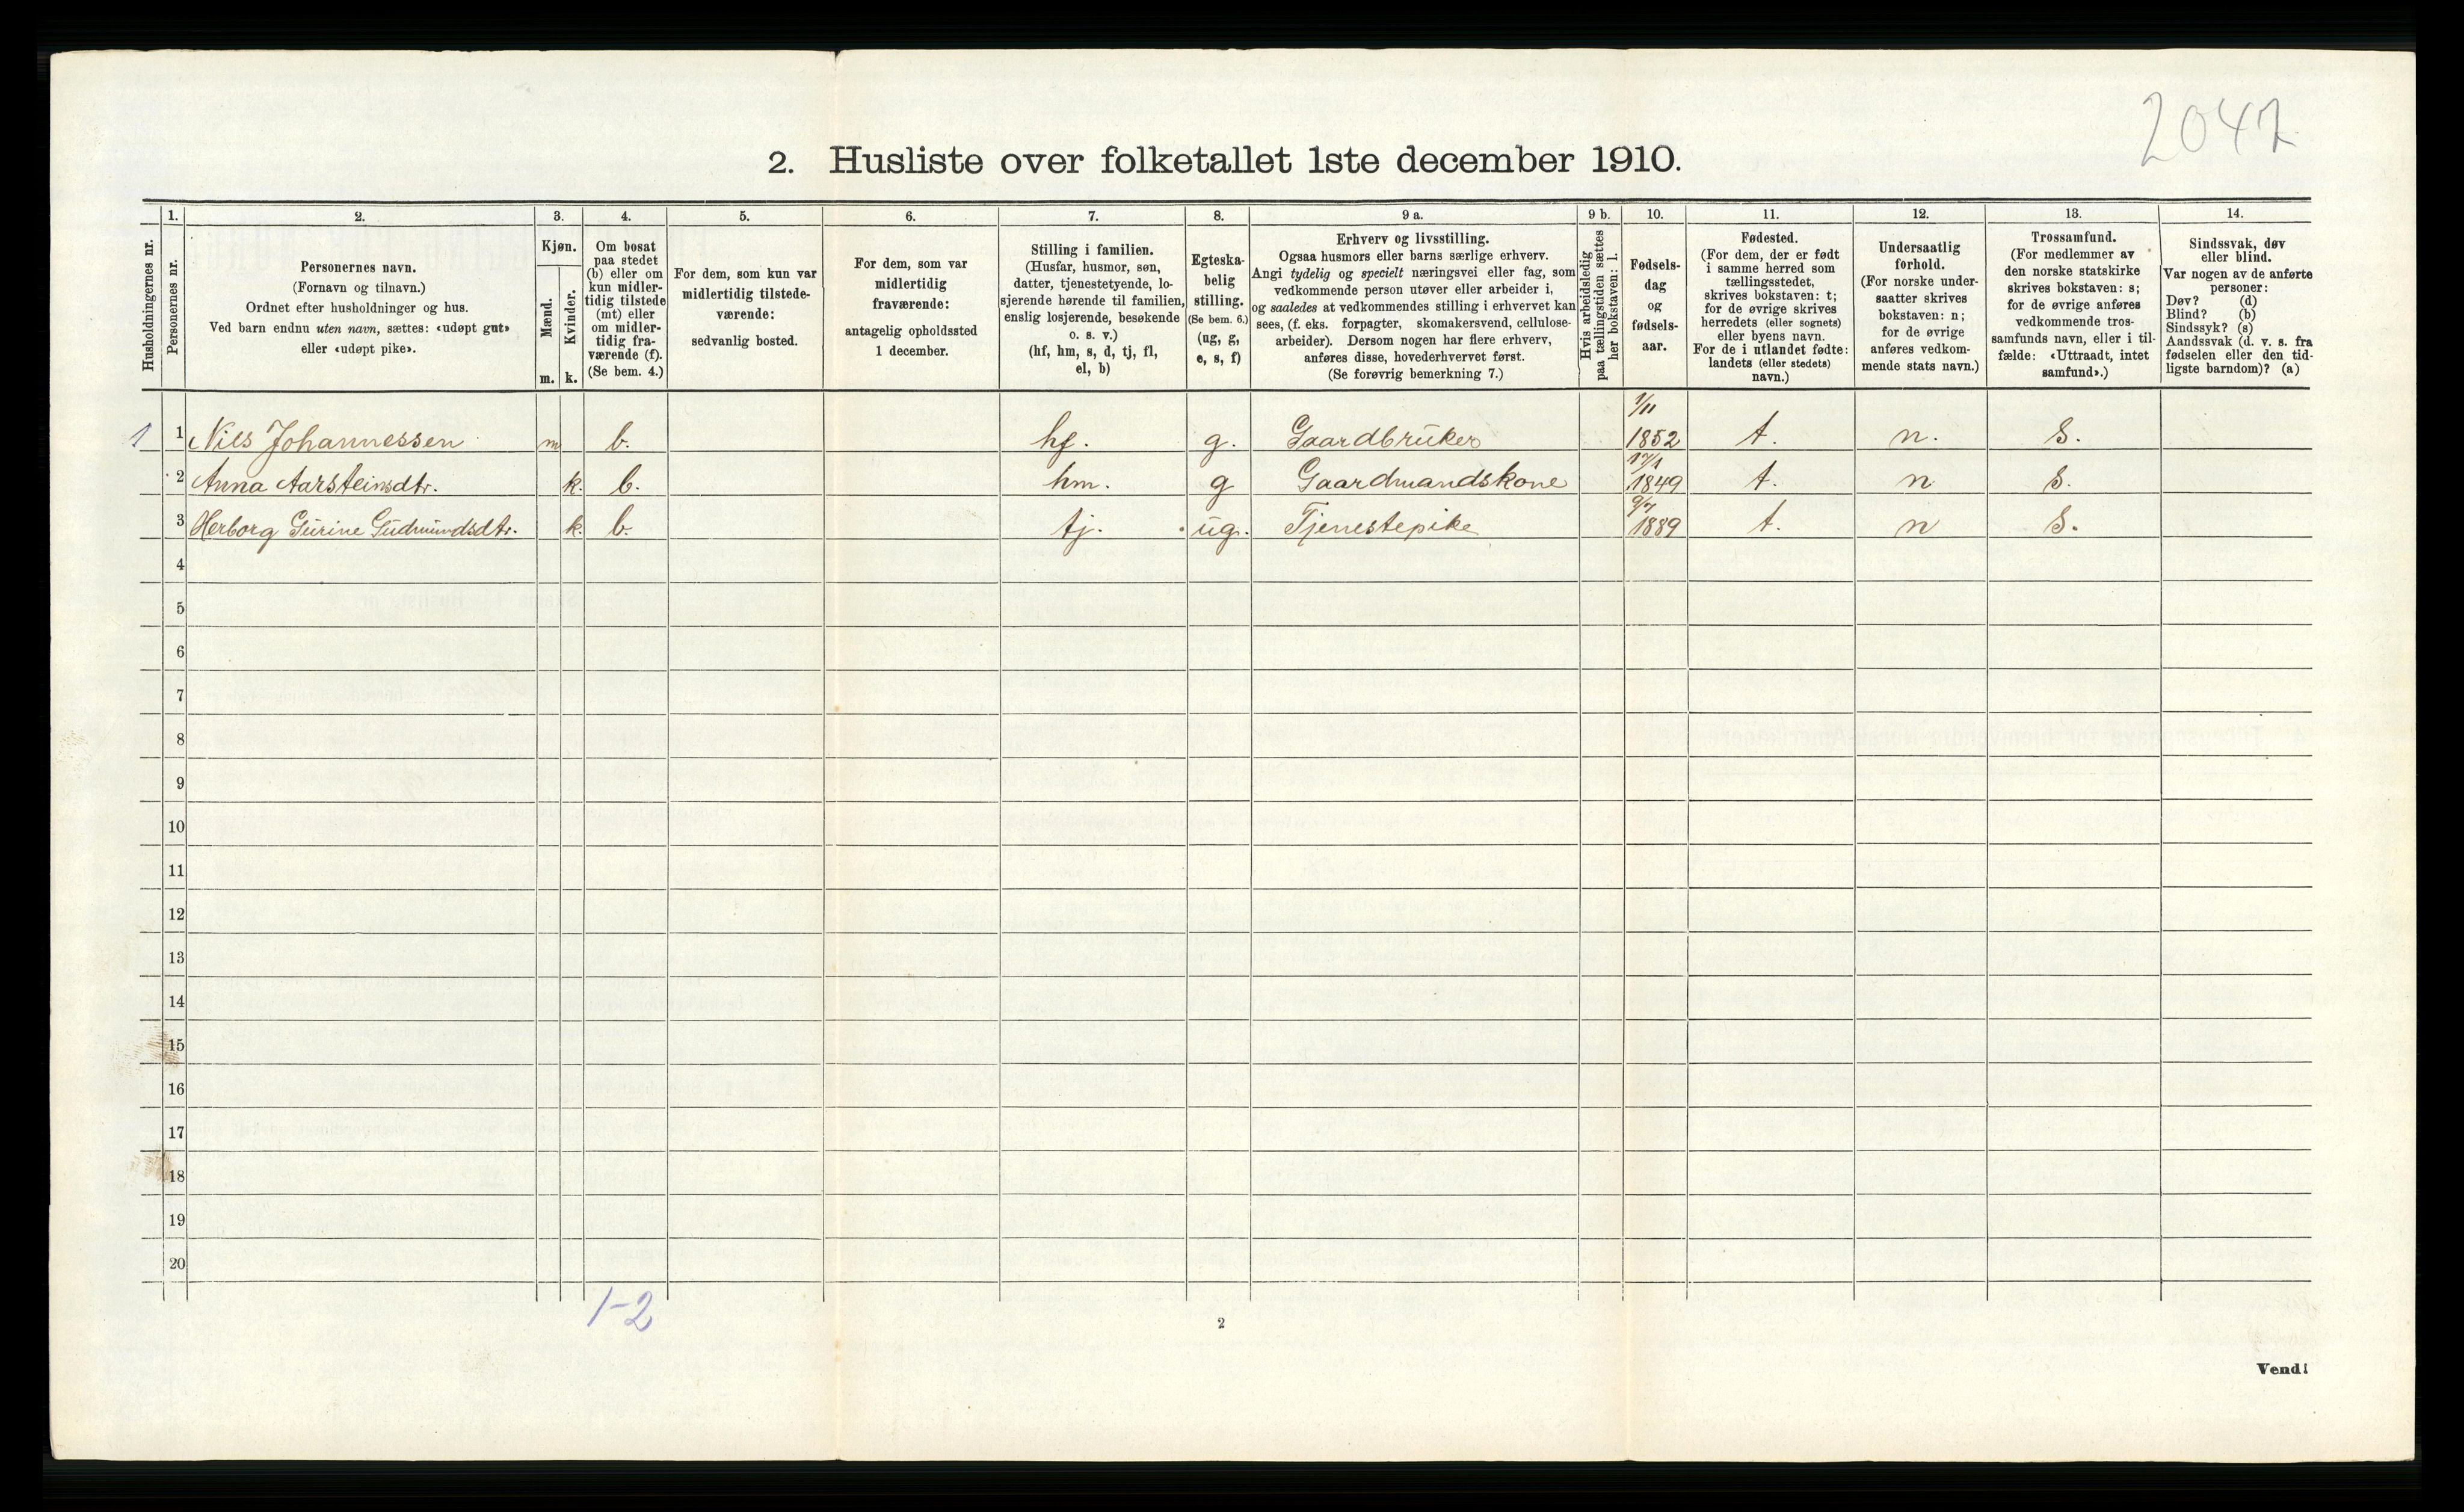 2047
2. Husliste over folketallet 1ste december 1910.
1. 2. 3. 4. 5. 6. 7. 8. 9 a. 9 b. 10. 11. 12. 13. 14.
Husholdningernes nr.
Personernes nr.
Personernes navn.
(Fornavn og tilnavn.)
Ordnet efter husholdninger og hus.
Ved barn endnu uten navn, sættes: «udøpt gut»
eller «udøpt pike».
Kjøn.
Mænd.
Kvinder.
m. k.
Om bosat
paa stedet
(b) eller om
kun midler-
tidig tilstede
(mt) eller
om midler-
tidig fra-
værende (f).
(Se bem. 4.)
For dem, som kun var
midlertidig tilstede-
værende:
sedvanlig bosted.
For dem, som var
midlertidig
fraværende:
antagelig opholdssted
1 december.
Stilling i familien.
(Husfar, husmor, søn,
datter, tjenestetyende, lo-
sjerende hørende til familien,
enslig losjerende, besøkende
o. s. v.)
(hf, hm, s, d, tj, fl,
el, b)
Egteska-
belig
stilling.
(Se bem. 6.)
(ug, g,
e, s, f)
Erhverv og livsstilling.
Ogsaa husmors eller barns særlige erhverv.
Angi tydelig og specielt næringsvei eller fag, som
vedkommende person utøver eller arbeider i,
og saaledes at vedkommendes stilling i erhvervet kan
sees, (f. eks. forpagter, skomakersvend, cellulose-
arbeider). Dersom nogen har flere erhverv,
anføres disse, hovederhvervet først.
(Se forøvrig bemerkning 7.)
Hvis arbeidsledig
paa tællingstiden sættes
her bokstaven: l.
Fødsels-
dag
og
fødsels-
aar.
Fødested.
(For dem, der er født
i samme herred som
tællingsstedet,
skrives bokstaven: t;
for de øvrige skrives
herredets (eller sognets)
eller byens navn.
For de i utlandet fødte:
landets (eller stedets)
navn.)
Undersaatlig
forhold.
(For norske under-
saatter skrives
bokstaven: n;
for de øvrige
anføres vedkom-
mende stats navn.)
Trossamfund.
(For medlemmer av
den norske statskirke
skrives bokstaven: s;
for de øvrige anføres
vedkommende tros-
samfunds navn, eller i til-
fælde: «Uttraadt, intet
samfund».)
Sindssvak, døv
eller blind.
Var nogen av de anførte
personer:
Døv? (d)
Blind? (b)
Sindssyk? (s)
Aandssvak (d. v. s. fra
fødselen eller den tid-
ligste barndom)? (a)
1 1 Nils Johannessen m b. hf. g. Gaardbruker 1/11 1852 t. n. S.
2 Anna Aarsteinsdtr. k. b. hm. g Gaardmandskone 17/1 1849 t. n S.
3 Herborg Gurine Gudmundsdtr. k. b. tj. ug. Tjenestepike 9/7 1889 t. n S.
4
5
6
7
8
9
10
11
12
13
14
15
16
17
18
19
20
1-2
2
Vend!